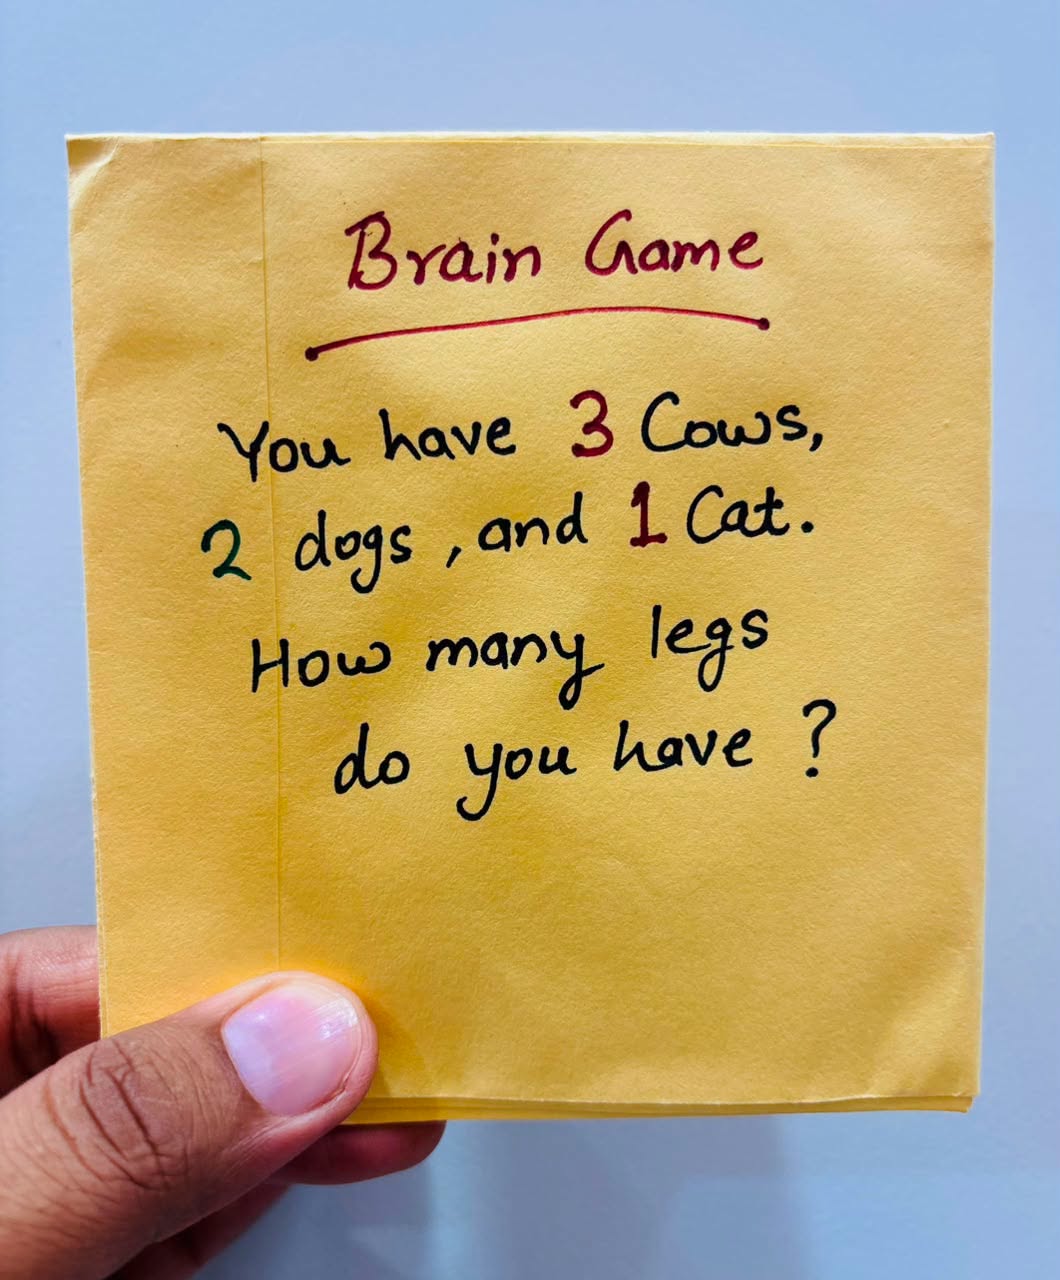 Brain Game
You have 3 Cows,
2 dogs, and 1 Cat.
How many legs
do you have ?